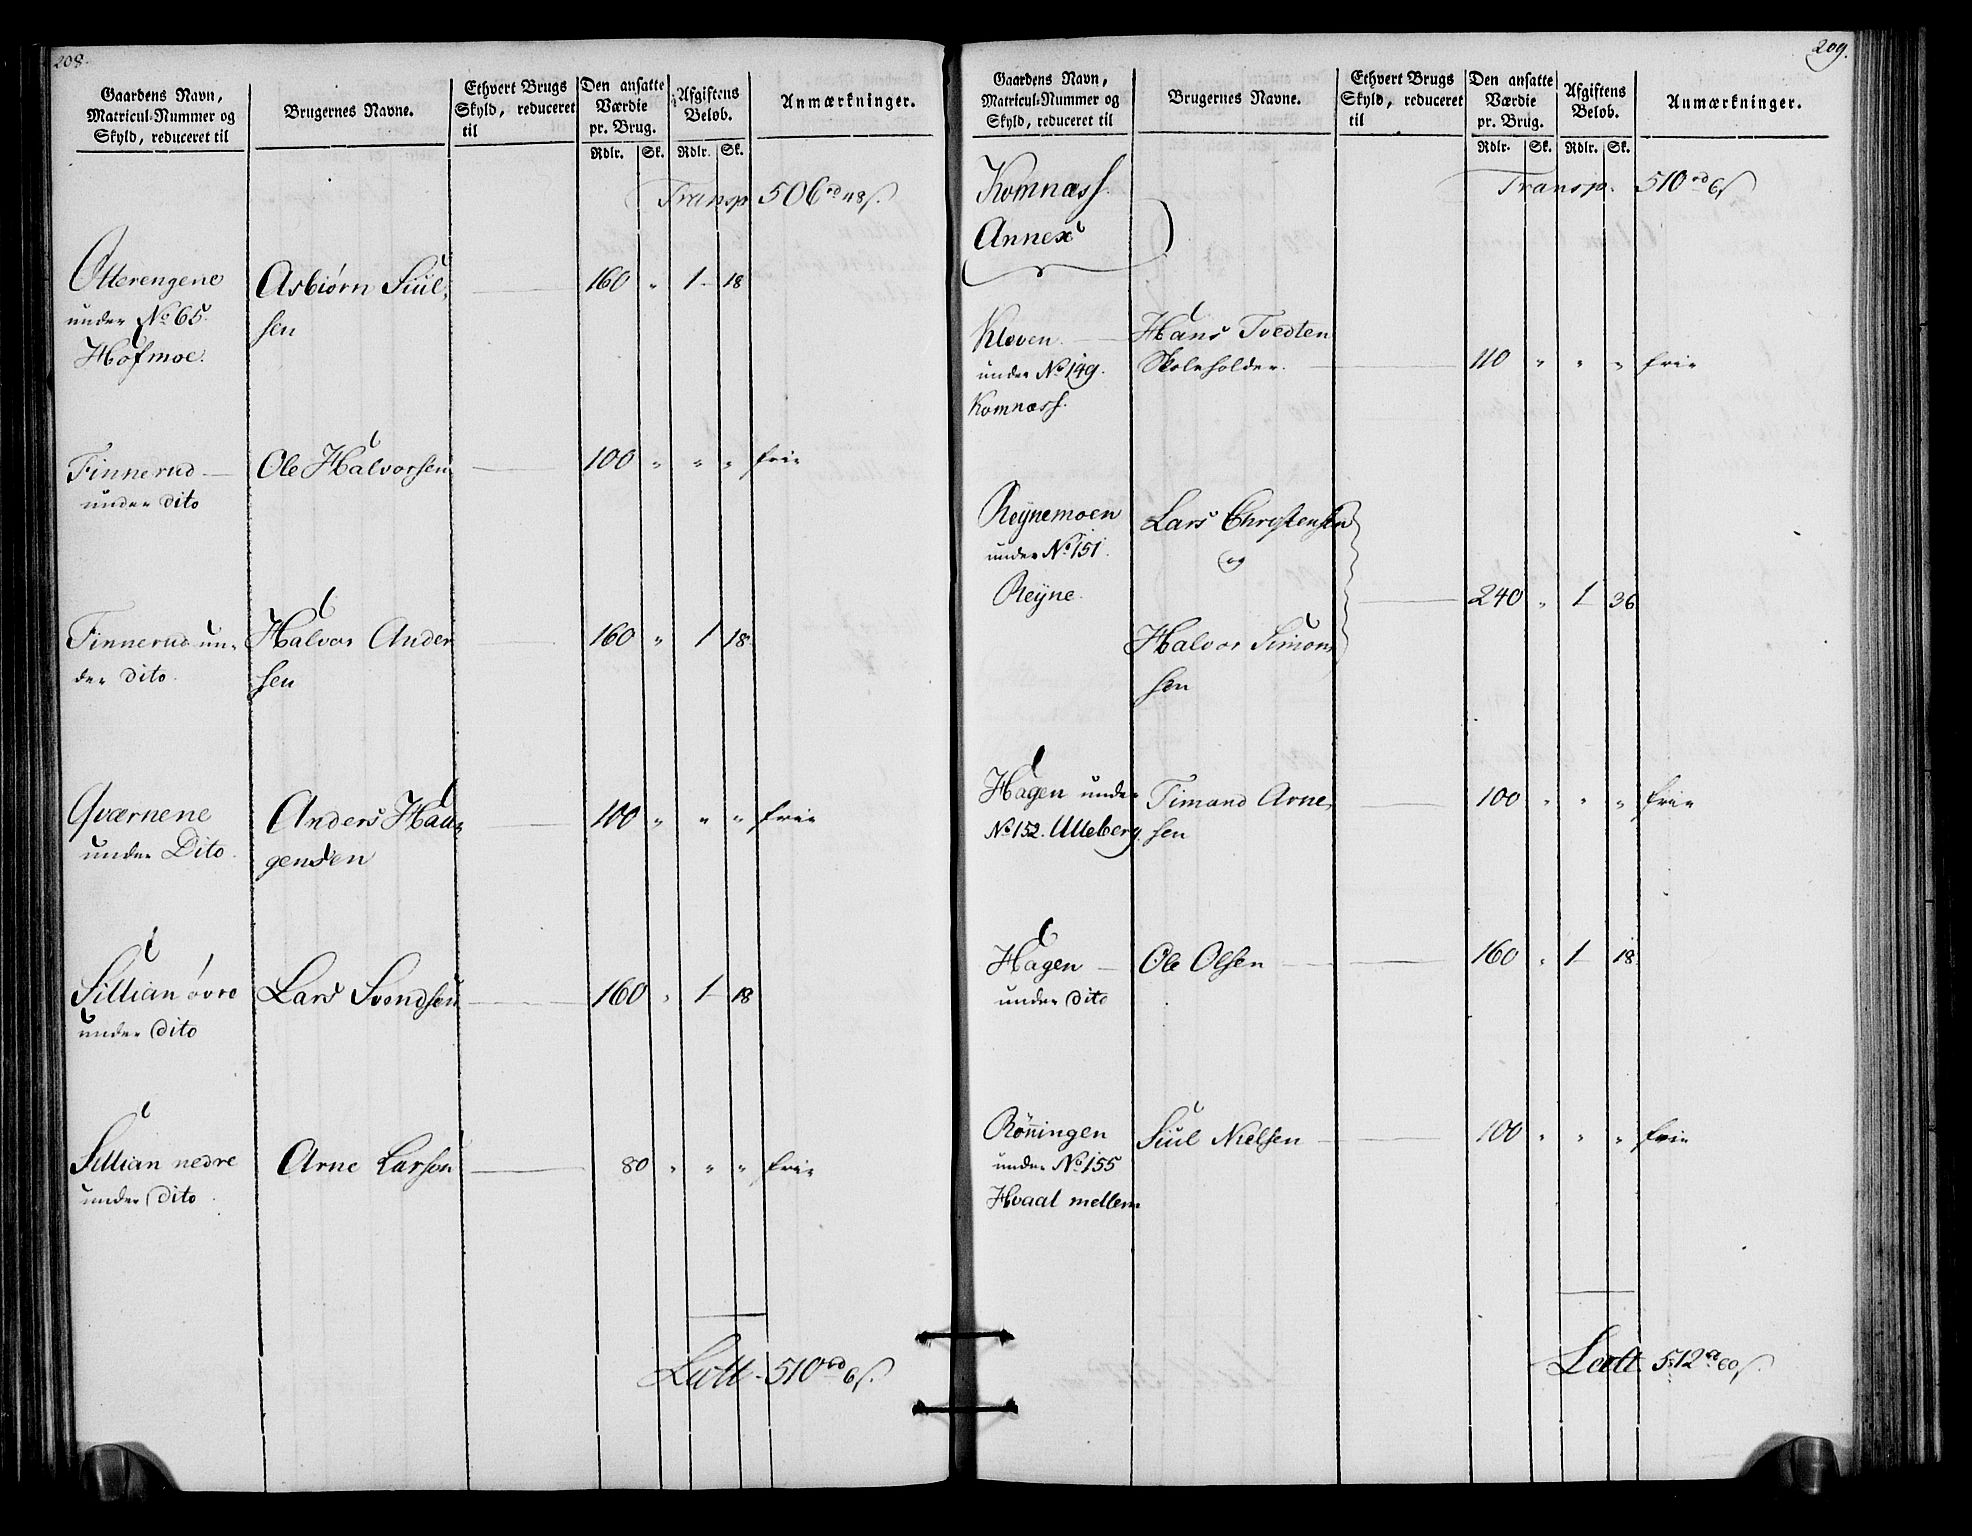 208.
Gaardens Navn,
Matricul-Nummer og
Skyld, reduceret til
Brugernes Navne.
Ethvert Brugs
Skyld, reduceret
til
Den ansatte
Værdie
pr. Brug.
Afgiftens
Beløb.
Anmærkninger.
Rdlr. Sk. Rdlr. Sk.
Transp 506 rd 48 s.
Otterengene Asbiørn Siul- 160 " 1 18
under No 65. sen
Hofmoe.
Finnerud Ole Halvorsen 100 " " " frie
under dito
Finnerud un- Halvor Ander 160 " 1 18
der dito. sen
Qværnene Anders Haa- 100 " " " frie
under Dito. gensen
Sillian øvre Lars Svendsen 160 " 1 18
under dito
Sillian nedre Arne Larsen 80 " " " frie
under dito.
Latt. 510 rd 6 s.
209.
Gaardens Navn,
Matricul-Nummer og
Skyld, reduceret til
Brugernes Navne.
Ethvert Brugs
Skyld, reduceret
til
Den ansatte
Værdie
pr. Brug.
Afgiftens
Beløb.
Anmærkninger.
Rdlr. Sk. Rdlr. Sk.
Komnæss. Transp. 510 rd 6 s
Annex
Kloven. Hans Tvedten
under No 149. Skoleholder. 110 " " " frie
Komnæss.
Reÿnemoen Lars Christensen
under No 151. og
Reÿne. 240 " 1 36
Halvor Simon
sen
Hagen under Timand Arne- 100 " " " frie
No 152. Ulleberg. sen
Hagen Ole Olsen 160 " 1 18
under dito
Rönningen Siul Nielsen 100 " " " frie
under No 155
Hvaal mellem
Latt. 512 rd 60 s.